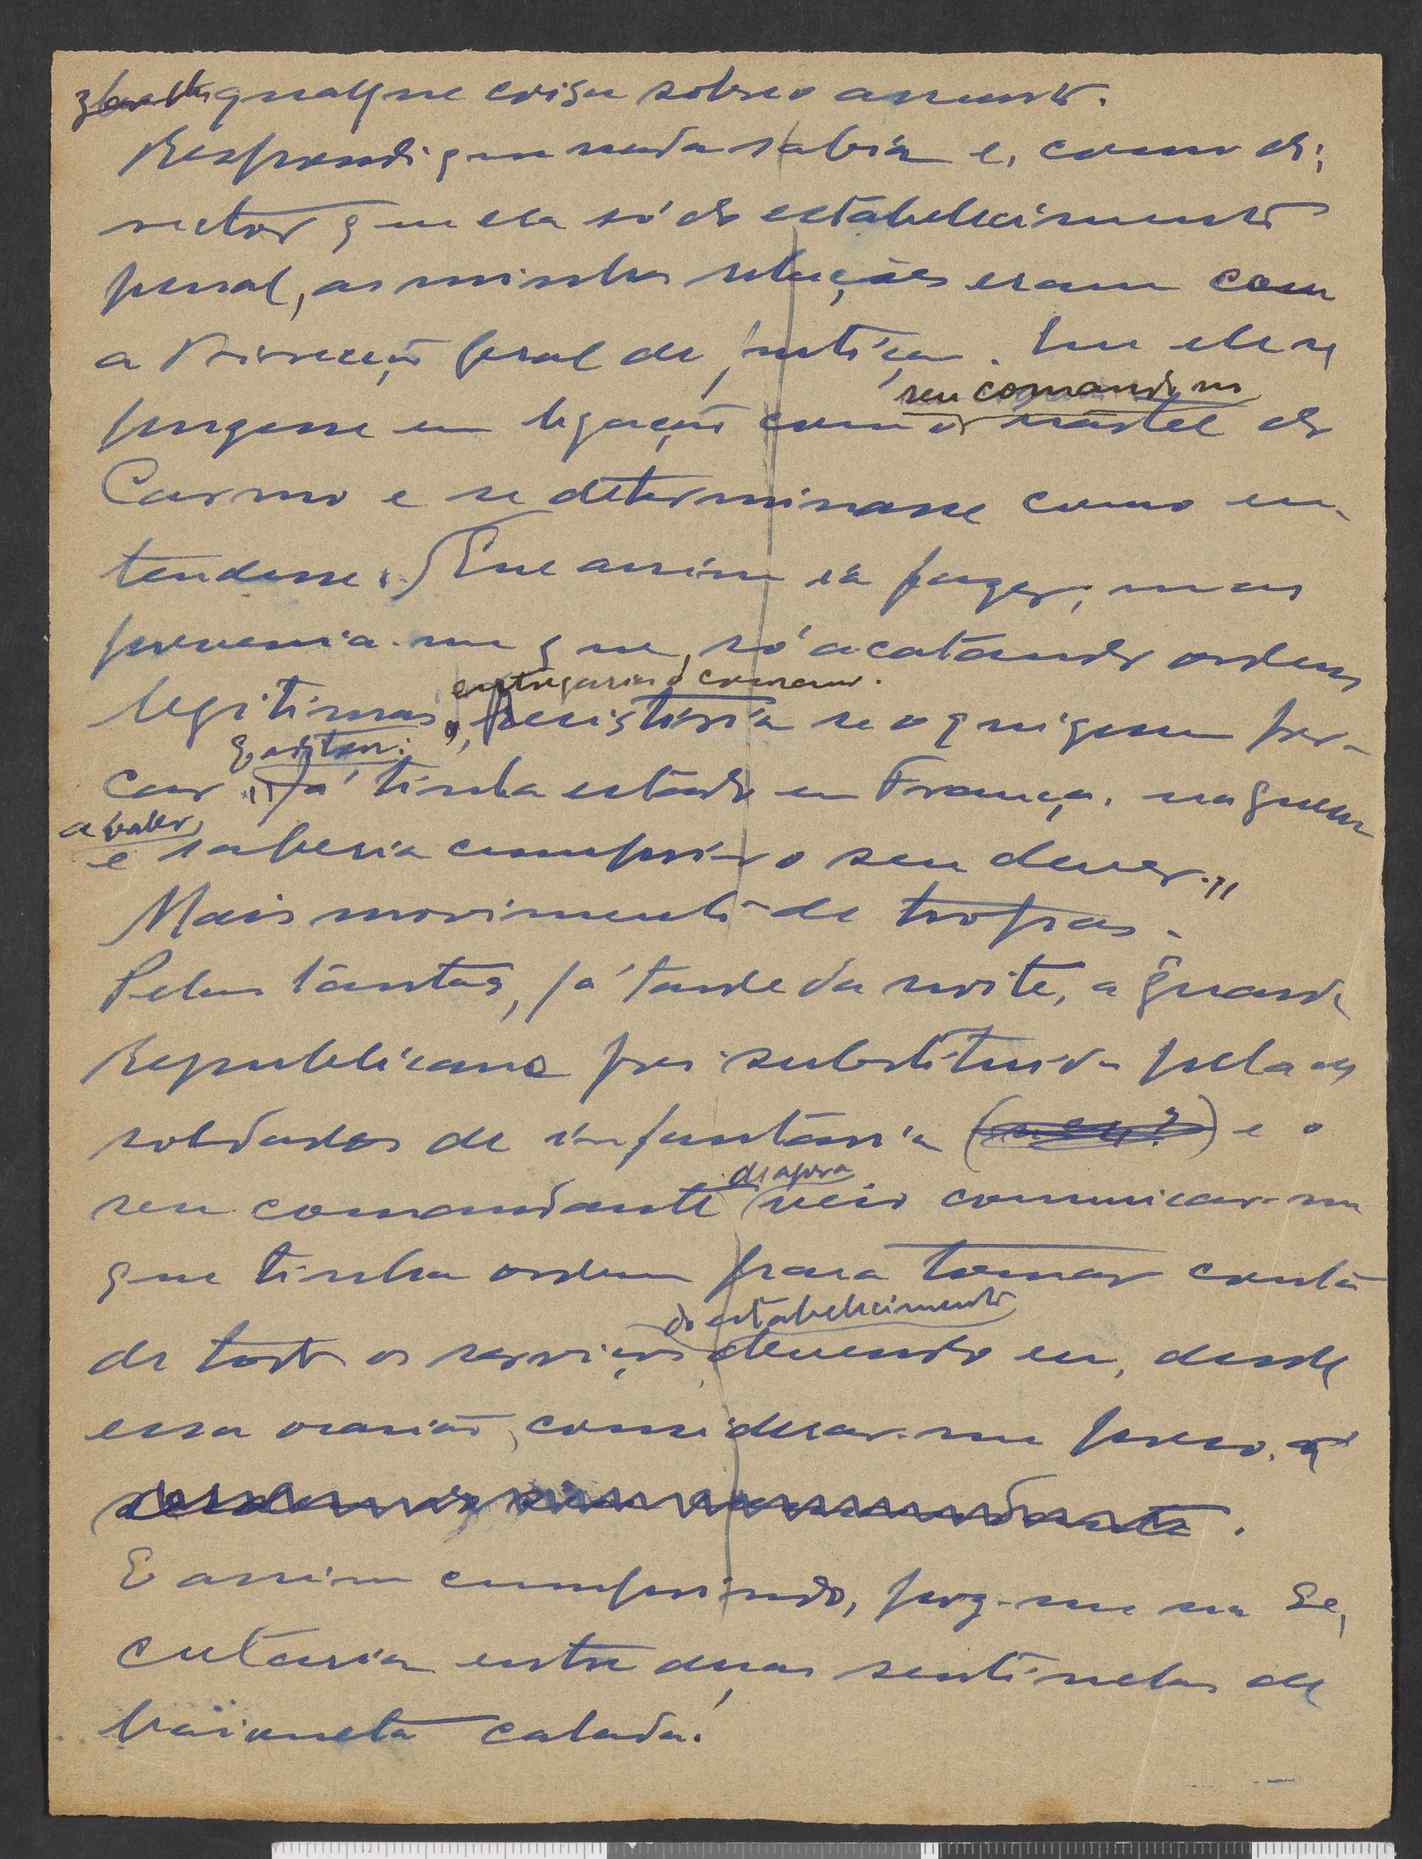 qualquer coisa sobre o assunto.
Respondi que nada sabia e, como di-
rector que era só do estabelecimento
penal, as minhas relações eram com
a Direcção Geral de Justiça. Que ele se
seu comando no
pusesse em ligação com o quartel do
Carmo e se determinasse como en-
tendesse. Que assim ia fazer; mas
prevenia-me que, só acatando ordens
entregaria o comando.
legitimas, resistiria se o quizessem for-
çar. "Já tinha estado em França, na guerra
a bater,
e saberia cumprir o seu dever."
Mais movimento de tropas.
Pelas tantas, já tarde da noite, a Guarda
Republicana foi substituida pela de
soldados de infantaria e o
de agora
seu comandante veio comunicar-me
que tinha ordem para tomar conta
do estabelecimento
de todos os serviços, devendo eu, desde
essa ocasião, considerar-me preso.
E assim cumprindo, poz-me na Se-
cretaria entre duas sentinelas de
baioneta calada!